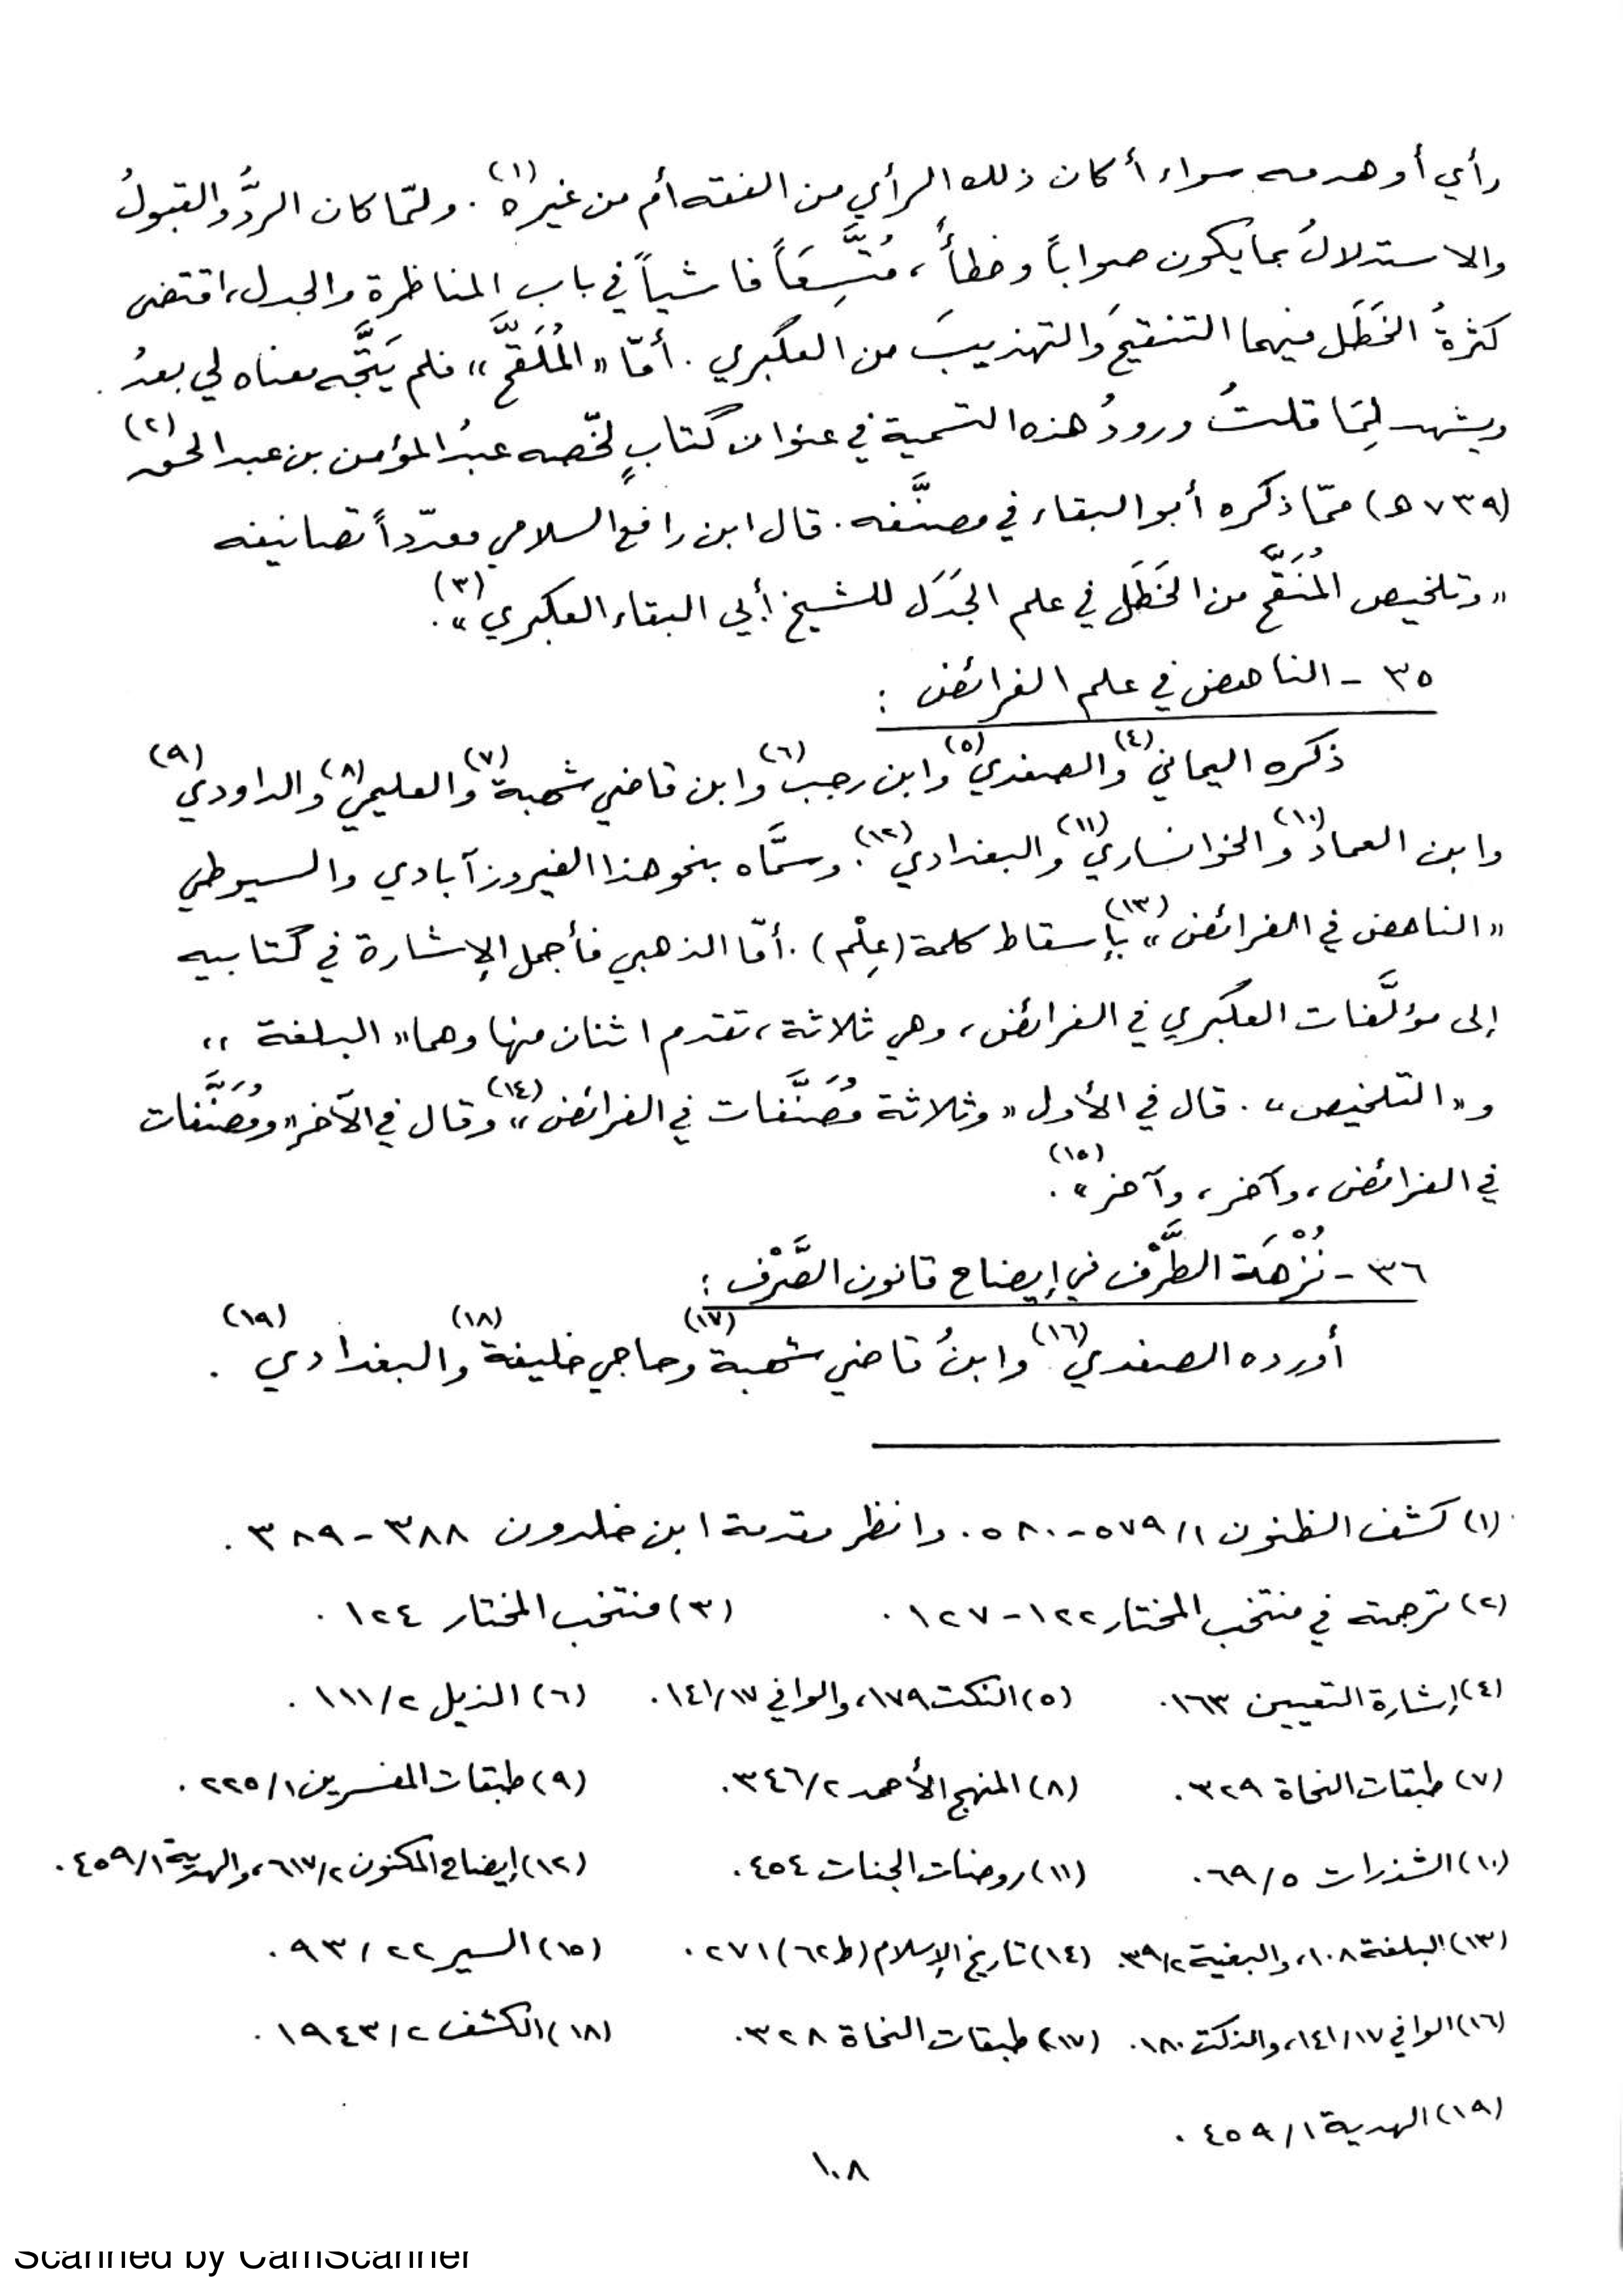 رأي أو هدمه سواء أكان ذلك الرأي من الفقه أم من غيره(١). ولمّا كان الردُّ والقبولُ
والاستدلالُ بما يكون صواباً وخطأً، مُتَّسِعَاً فاشياً في باب المناظرة والجدل، اقتضى
كثرةُ الخَطَل فيهما التنقيحَ والتهذيبَ من العكبري. أمّا «المُلَقَّح» فلم يَتَّجه معناه لي بعدُ.
ويشهد لِمَا قلتُ ورودُ هذه التسمية في عنوان كتابٍ لخّصه عبدُ المؤمن بن عبد الحق(٢)
(٧٣٩ هـ) ممّا ذكره أبو البقاء في مصنَّفه. قال ابن رافع السلامي معدّداً تصانيفه
«وتلخيص المُنَقَّح من الخَطَل في علم الجَدَل للشيخ أبي البقاء العكبري»(٣).
٣٥ - الناهض في علم الفرائض :
ذكره اليماني(٤) والصفدي(٥) وابن رجب(٦) وابن قاضي شهبة(٧) والعليمي(٨) والداودي(٩)
وابن العماد(١٠) والخوانساري(١١) والبغدادي(١٢). وسمَّاه بنحو هذا الفيروزآبادي والسيوطي
«الناهض في الفرائض»(١٣) بإسقاط كلمة (عِلْم). أمّا الذهبي فأجمل الإشارة في كتابيه
إلى مؤلَّفات العكبري في الفرائض، وهي ثلاثة، تقدم اثنان منها وهما «البلغة»
و«التلخيص». قال في الأول «وثلاثة مُصَنَّفات في الفرائض»(١٤) وقال في الآخر «ومُصَنَّفات
في الفرائض، وآخر، وآخر»(١٥).
٣٦ - نُزْهَة الطَّرْف في إيضاح قانون الصَّرْف :
أورده الصفدي(١٦) وابنُ قاضي شهبة(١٧) وحاجي خليفة(١٨) والبغدادي(١٩).
(١) كشف الظنون ١/ ٥٧٩-٥٨٠. وانظر مقدمة ابن خلدون ٣٨٨-٣٨٩.
(٢) ترجمته في منتخب المختار ١٢٢-١٢٧. (٣) منتخب المختار ١٢٤.
(٤) إشارة التعيين ١٦٣. (٥) النكت ١٧٩، والوافي ١٧/ ١٤١. (٦) الذيل ٢/ ١١١.
(٧) طبقات النحاة ٣٢٩. (٨) المنهج الأحمد ٢/ ٣٤٦. (٩) طبقات المفسرين ١/ ٢٢٥.
(١٠) الشذرات ٥/ ٦٩. (١١) روضات الجنات ٤٥٤. (١٢) إيضاح المكنون ٢/ ٦١٧، والهدية ١/ ٤٥٩.
(١٣) البلغة ١٠٨، والبغية ٢/ ٣٩. (١٤) تاريخ الإسلام (ط ٦٢) ٢٧١. (١٥) السير ٢٢/ ٩٣.
(١٦) الوافي ١٧/ ١٤١، والنكت ١٨٠. (١٧) طبقات النحاة ٣٢٨. (١٨) الكشف ٢/ ١٩٤٣.
(١٩) الهدية ١/ ٤٥٩.
١٠٨
Scanned by CamScanner